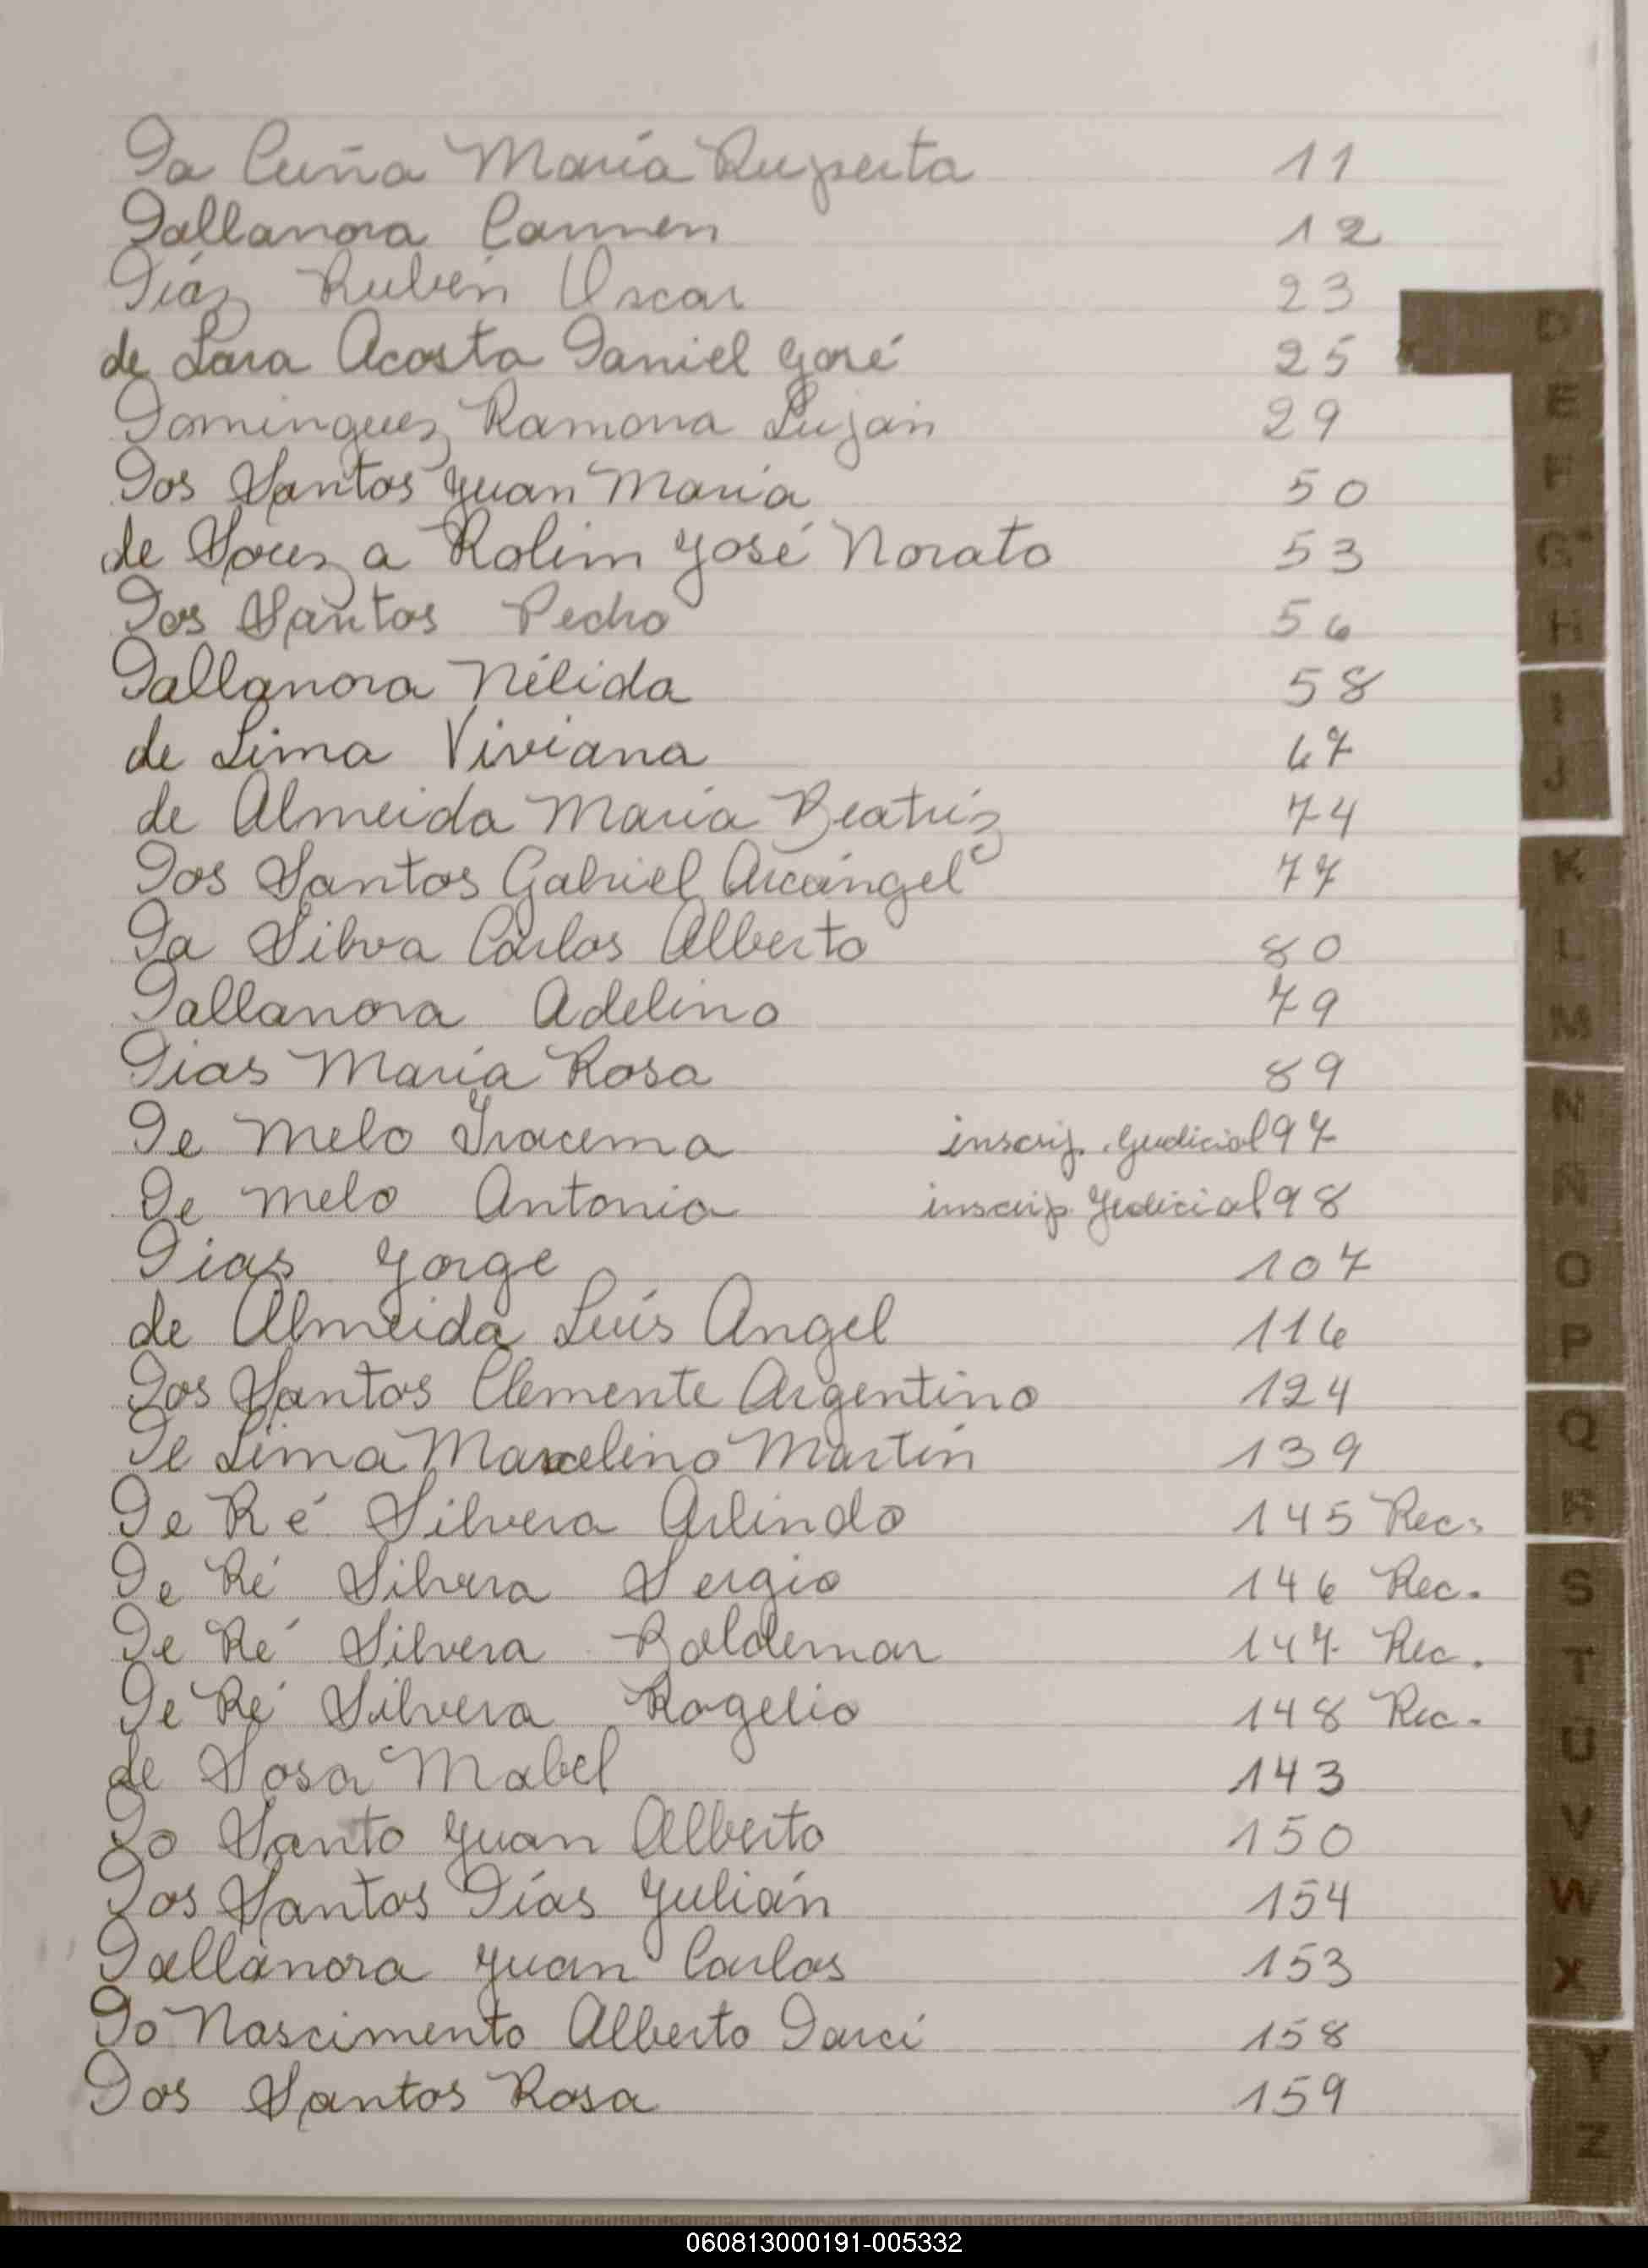 Da Cuña María Ruperta 11
Dallanora Carmen 12
Díaz Rubén Oscar 23
de Lara Acosta Daniel José 25
Dominguez Ramona Luján 29
Dos Santos Juan María 50
de Souza Rolim José Norato 53
Dos Santos Pedro 56
Dallanora Nélida 58
de Lima Viviana 67
de Almeida María Beatríz 74
Dos Santos Gabriel Arcángel 77
Da Silva Carlos Alberto 80
Dallanora Adelino 79
Dias María Rosa 89
De Melo Iracema inscrip. Judicial 97
De Melo Antonio inscrip Judicial 98
Dias Jorge 107
de Almeida Luís Angel 116
Dos Santos Clemente Argentino 124
De Lima Marcelino Martín 139
De Ré Silvera Arlindo 145 Rec.
De Ré Silvera Sergio 146 Rec.
De Ré Silvera Baldemar 147 Rec.
De Ré Silvera Rogelio 148 Rec.
de Sosa Mabel 143
Do Santo Juan Alberto 150
Dos Santos Días Julián 154
Dallanora Juan Carlos 153
Do Nascimento Alberto Darcí 158
Dos Santos Rosa 159
D
E
F
G
H
I
J
K
L
M
N
Ñ
O
P
Q
R
S
T
U
V
W
X
Y
Z
060813000191-005332